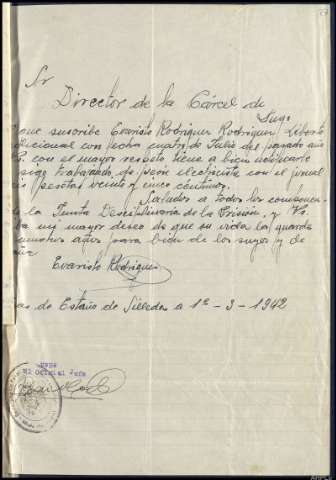 Sr
Director de la Cárcel de
Lugo
que suscribe Evaristo Rodriguez Rodriguez, Liberto
dicional con fecha cuatro de Julio del pasado año
S. con el mayor respeto tiene a bien notificarle
sigo trabajando, de peón electricista con el jornal
pesetas veinte y cinco centimos.
Saludos a todos los componen-
de la Junta Disciplinaria de la Prision, y Vs.
ba mi mayor deseo de que su vida la guarde
muchos años para bien de los suyos y de
Evaristo Rodriguez
as de Estaño de Silleda a 1º - 3 - 1942
El Oficial Jefe